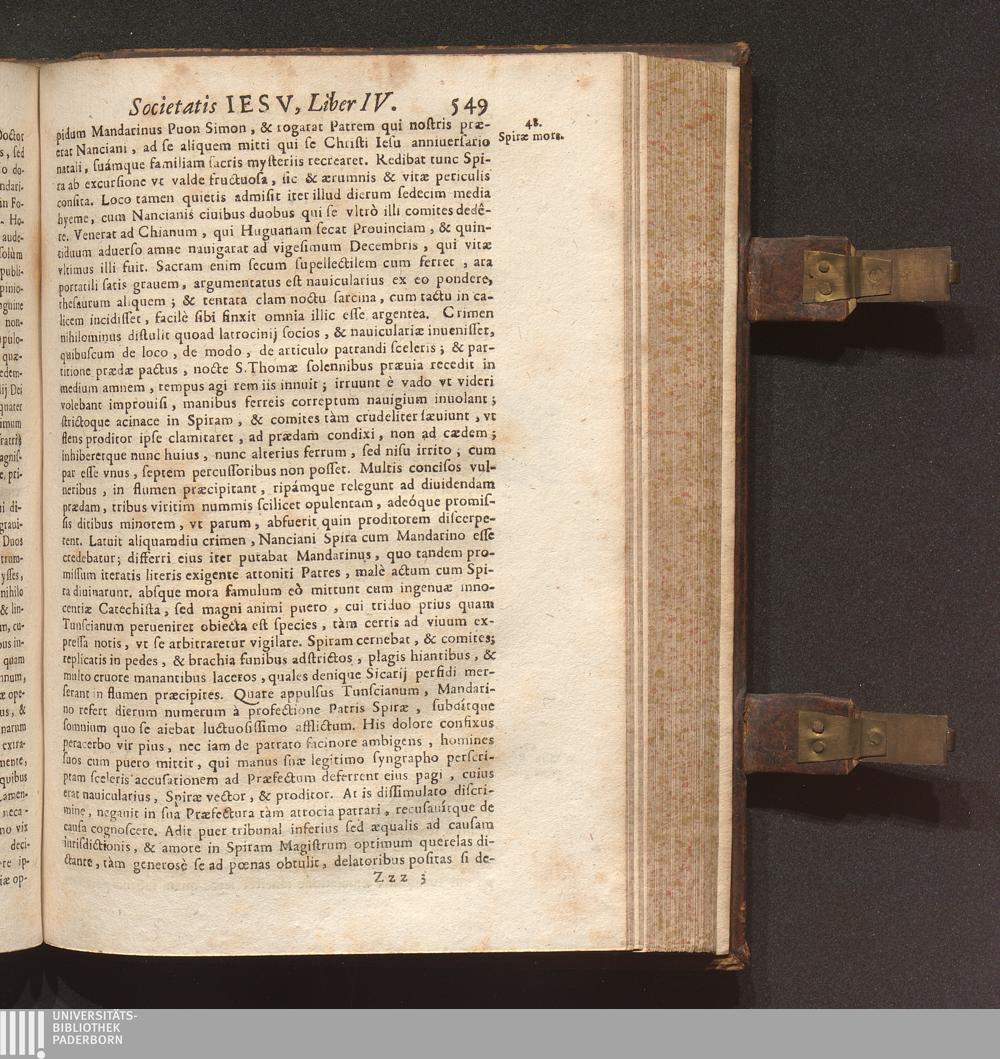 Societatis IESV, Liber IV. 549
48.
Spiræ mors.
pidum Mandarinus Puon Simon, & rogarat Patrem qui nostris præ-
erat Nanciani, ad se aliquem mitti qui se Christi Iesu anniuersario
natali, suámque familiam sacris mysteriis recrearet. Redibat tunc Spi-
ra ab excursione vt valde fructuosa, sic & ærumnis & vitæ periculis
consita. Loco tamen quietis admisit iter illud dierum sedecim media
hyeme, cum Nancianis ciuibus duobus qui se vltrò illi comites dedê-
re. Venerat ad Chianum, qui Huguanam secat Prouinciam, & quin-
tiduum aduerso amne nauigarat ad vigesimum Decembris, qui vitæ
vltimus illi fuit. Sacram enim secum supellectilem cum ferret, ara
portatili satis grauem, argumentatus est nauicularius ex eo pondere,
thesaurum aliquem; & tentata clam noctu sarcina, cum tactu in ca-
licem incidisset, facilè sibi finxit omnia illic esse argentea. Crimen
nihilominus distulit quoad latrocinij socios, & nauiculariæ inuenisset,
quibuscum de loco, de modo, de articulo patrandi sceleris; & par-
titione prædæ pactus, nocte S. Thomæ solennibus præuia recedit in
medium amnem, tempus agi rem iis innuit; irruunt è vado vt videri
volebant improuisi, manibus ferreis correptum nauigium inuolant;
strictoque acinace in Spiram, & comites tàm crudeliter sæuiunt, vt
flens proditor ipse clamitaret, ad prædam condixi, non ad cædem;
inhiberetque nunc huius, nunc alterius ferrum, sed nisu irrito; cum
par esse vnus, septem percussoribus non posset. Multis concisos vul-
neribus, in flumen præcipitant, ripámque relegunt ad diuidendam
prædam, tribus viritim nummis scilicet opulentam, adeóque promis-
sis ditibus minorem, vt parum, absuerit quin proditorem discerpe-
rent. Latuit aliquamdiu crimen, Nanciani Spira cum Mandarino esse
credebatur; differri eius iter putabat Mandarinus, quo tandem pro-
missum iteratis literis exigente attoniti Patres, malè actum cum Spi-
ra diuinarunt. absque mora famulum eò mittunt cum ingenuæ inno-
centiæ Catechista, sed magni animi puero, cui triduo prius quam
Tunscianum perueniret obiecta est species, tàm certis ad viuum ex-
pressa notis, vt se arbitraretur vigilare. Spiram cernebat, & comites;
replicatis in pedes, & brachia funibus adstrictos, plagis hiantibus, &
multo cruore manantibus laceros, quales denique Sicarij perfidi mer-
serant in flumen præcipites. Quare appulsus Tunscianum, Mandari-
no refert dierum numerum à profectione Patris Spiræ, subdítque
somnium quo se aiebat luctuosissimo afflictum. His dolore confixus
peracerbo vir pius, nec iam de patrato facinore ambigens, homines
suos cum puero mittit, qui manus suæ legitimo syngrapho perscri-
ptam sceleris accusationem ad Præfectum deferrent eius pagi, cuius
erat nauicularius, Spiræ vector, & proditor. At is dissimulato discri-
mine, negauit in sua Præfectura tàm atrocia patrari, recusauítque de
causa cognoscere. Adit puer tribunal inferius sed æqualis ad causam
iurisdictionis, & amore in Spiram Magistrum optimum querelas di-
ctante, tàm generosè se ad pœnas obtulit, delatoribus positas si de-
Zzz 3
UNIVERSITÄTS-
BIBLIOTHEK
PADERBORN